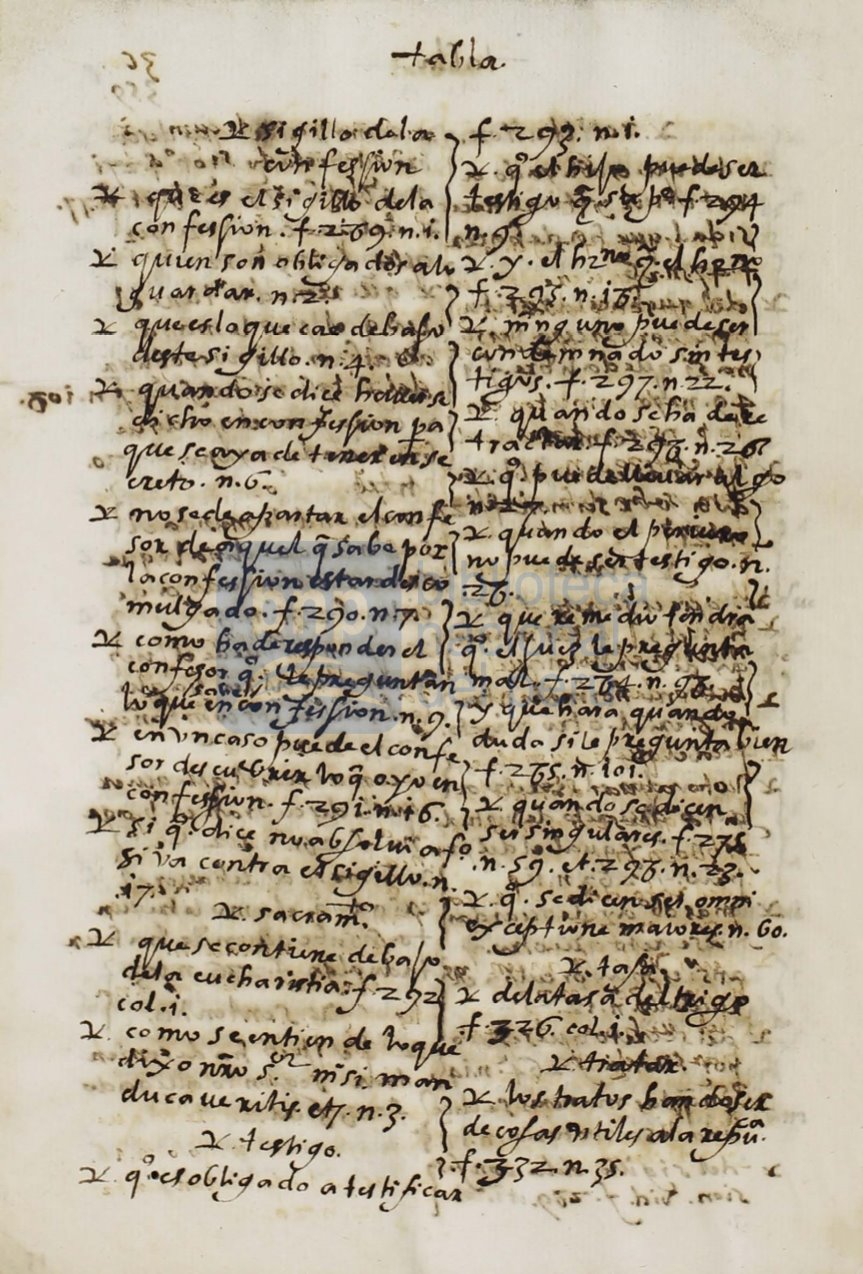 tabla.
sigillo dela
confession
que es el sigillo dela
confession. f. 269. n. i.
quien son obligados alo
guardar. n. 2.
que es lo que cae debaxo
deste sigillo. n. 4.
quando se dice
dicho en confession pa
que se aya de tener en se
creto. n. 6.
no se de apartar el confe
sor de aquel q̃ sabe por
la confession estar desco
mulgado. f. 290. n. 7.
como ha de responder el
confesor qº. le preguntan
lo que en confession. n. 9.
en vn caso puede el confe
sor descubrir lo q̃ oyo en
confession. f. 291. n. 16.
si qº. dice no absolui a fo
si va contra el sigillo. n.
17.
sacramtº.
que se contiene debaxo
dela eucharistia. f. 292
col. i.
como se entiende lo que
dixo nr̃o sºr nisi man
ducaueritis. et7. n. 3.
testigo.
qº. es obligado a testificar
f. 293. n. i.
qº. el hijo puede ser
testigo f. 294
n. 9.
y. el
f. 295. n. 16.
ninguno puede ser
condemnado sin tes
tigos. f. 297. n. 22.
quando se ha de re
tractar f. 296. n. 26
qº. puede llevar algo
n. 27.
quando el
no puede ser testigo. n.
26.
que remedio tendra
qº. el juez le pregunta
mal. f. 264. n. 96.
y que hara quando
duda si le pregunta bien
f. 265. n. 101.
quando se dicen
ser singulares. f. 275
n. 59. et. 296. n. 23.
qº. se dicen ser omni
exceptione maiores. n. 60.
tasa.
dela tasa del trigo
f. 326. col. i.
tratar.
los tratos han de ser
de cosas utiles ala repu.ca
f. 332. n. 35.